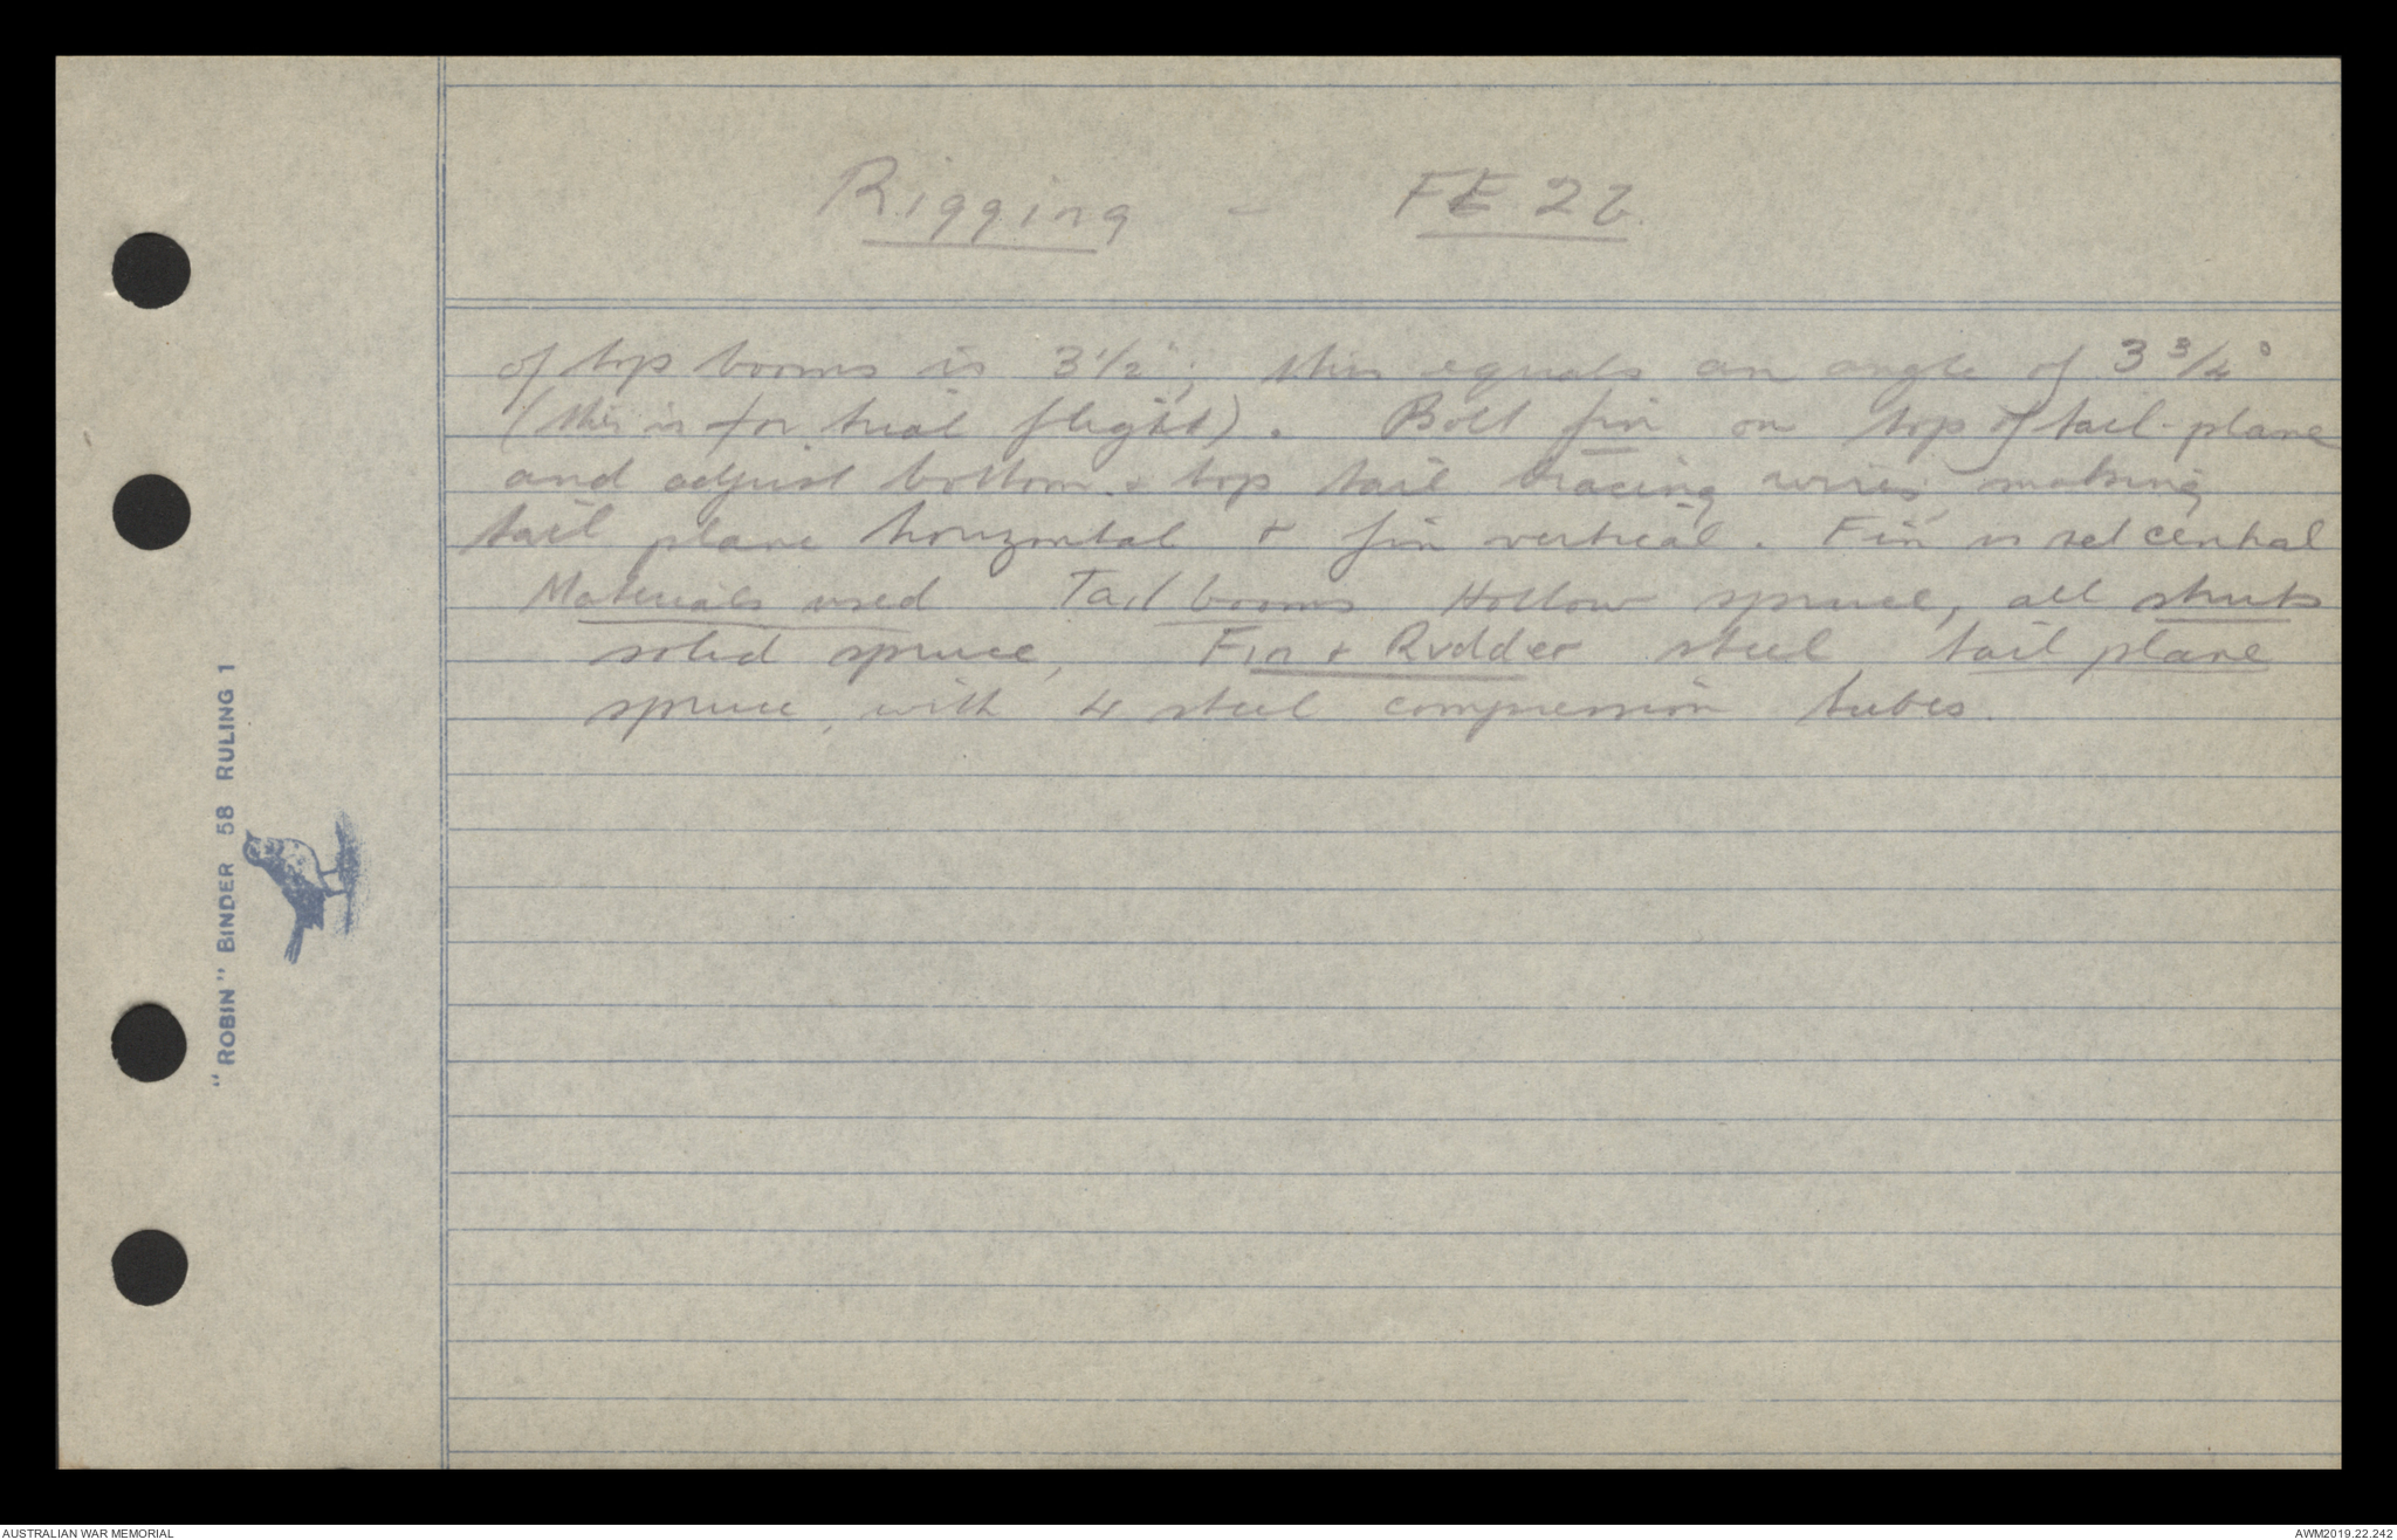 Rigging - FE 2b.
of top booms is 3 1/2"; this equals an angle of 3 3/4°
(this is for trial flight). Bolt fin on top of tail-plane
and adjust bottom & top tail bracing wires, making
tail plane horizontal & fin vertical. Fin is set central
Materials used Tail booms Hollow spruce, all struts
solid spruce, Fin & Rudder steel, tail plane
spruce, with 4 steel compression tubes.
"ROBIN" BINDER 58 RULING 1
AUSTRALIAN WAR MEMORIAL
AWM2019.22.242